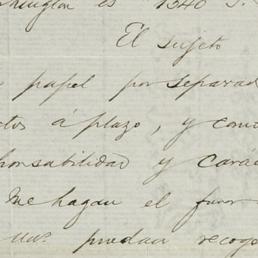 ashington es 1340
El sujeto
papel por separad
tos á plazo, y com
ponsabilidad y cará
Me hagan el favor
puedan recog